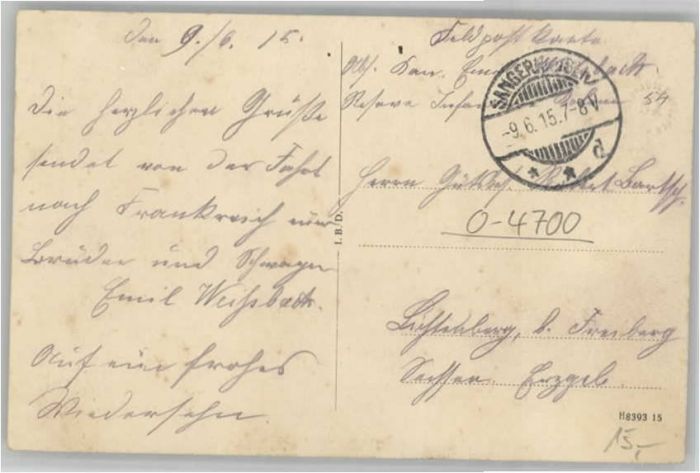 Den 9./6. 15.
Die herzlichen Grüße
sendet von der Fahrt
nach Frankreich
Bruder und Schwager
Emil Weißbach.
Auf ein frohes
Wiedersehn.
Feldpostkarte
Abs. Kan. Emil Weißbach
Reserve 54
SANGERHAUSEN
-9.6.15.7-8V.
d
Herrn Gutsbes. Bartsch.
O-4700
Lichtenberg, b. Freiberg
Sachsen Erzgeb.
I. B. D.
H8393 15
15,-